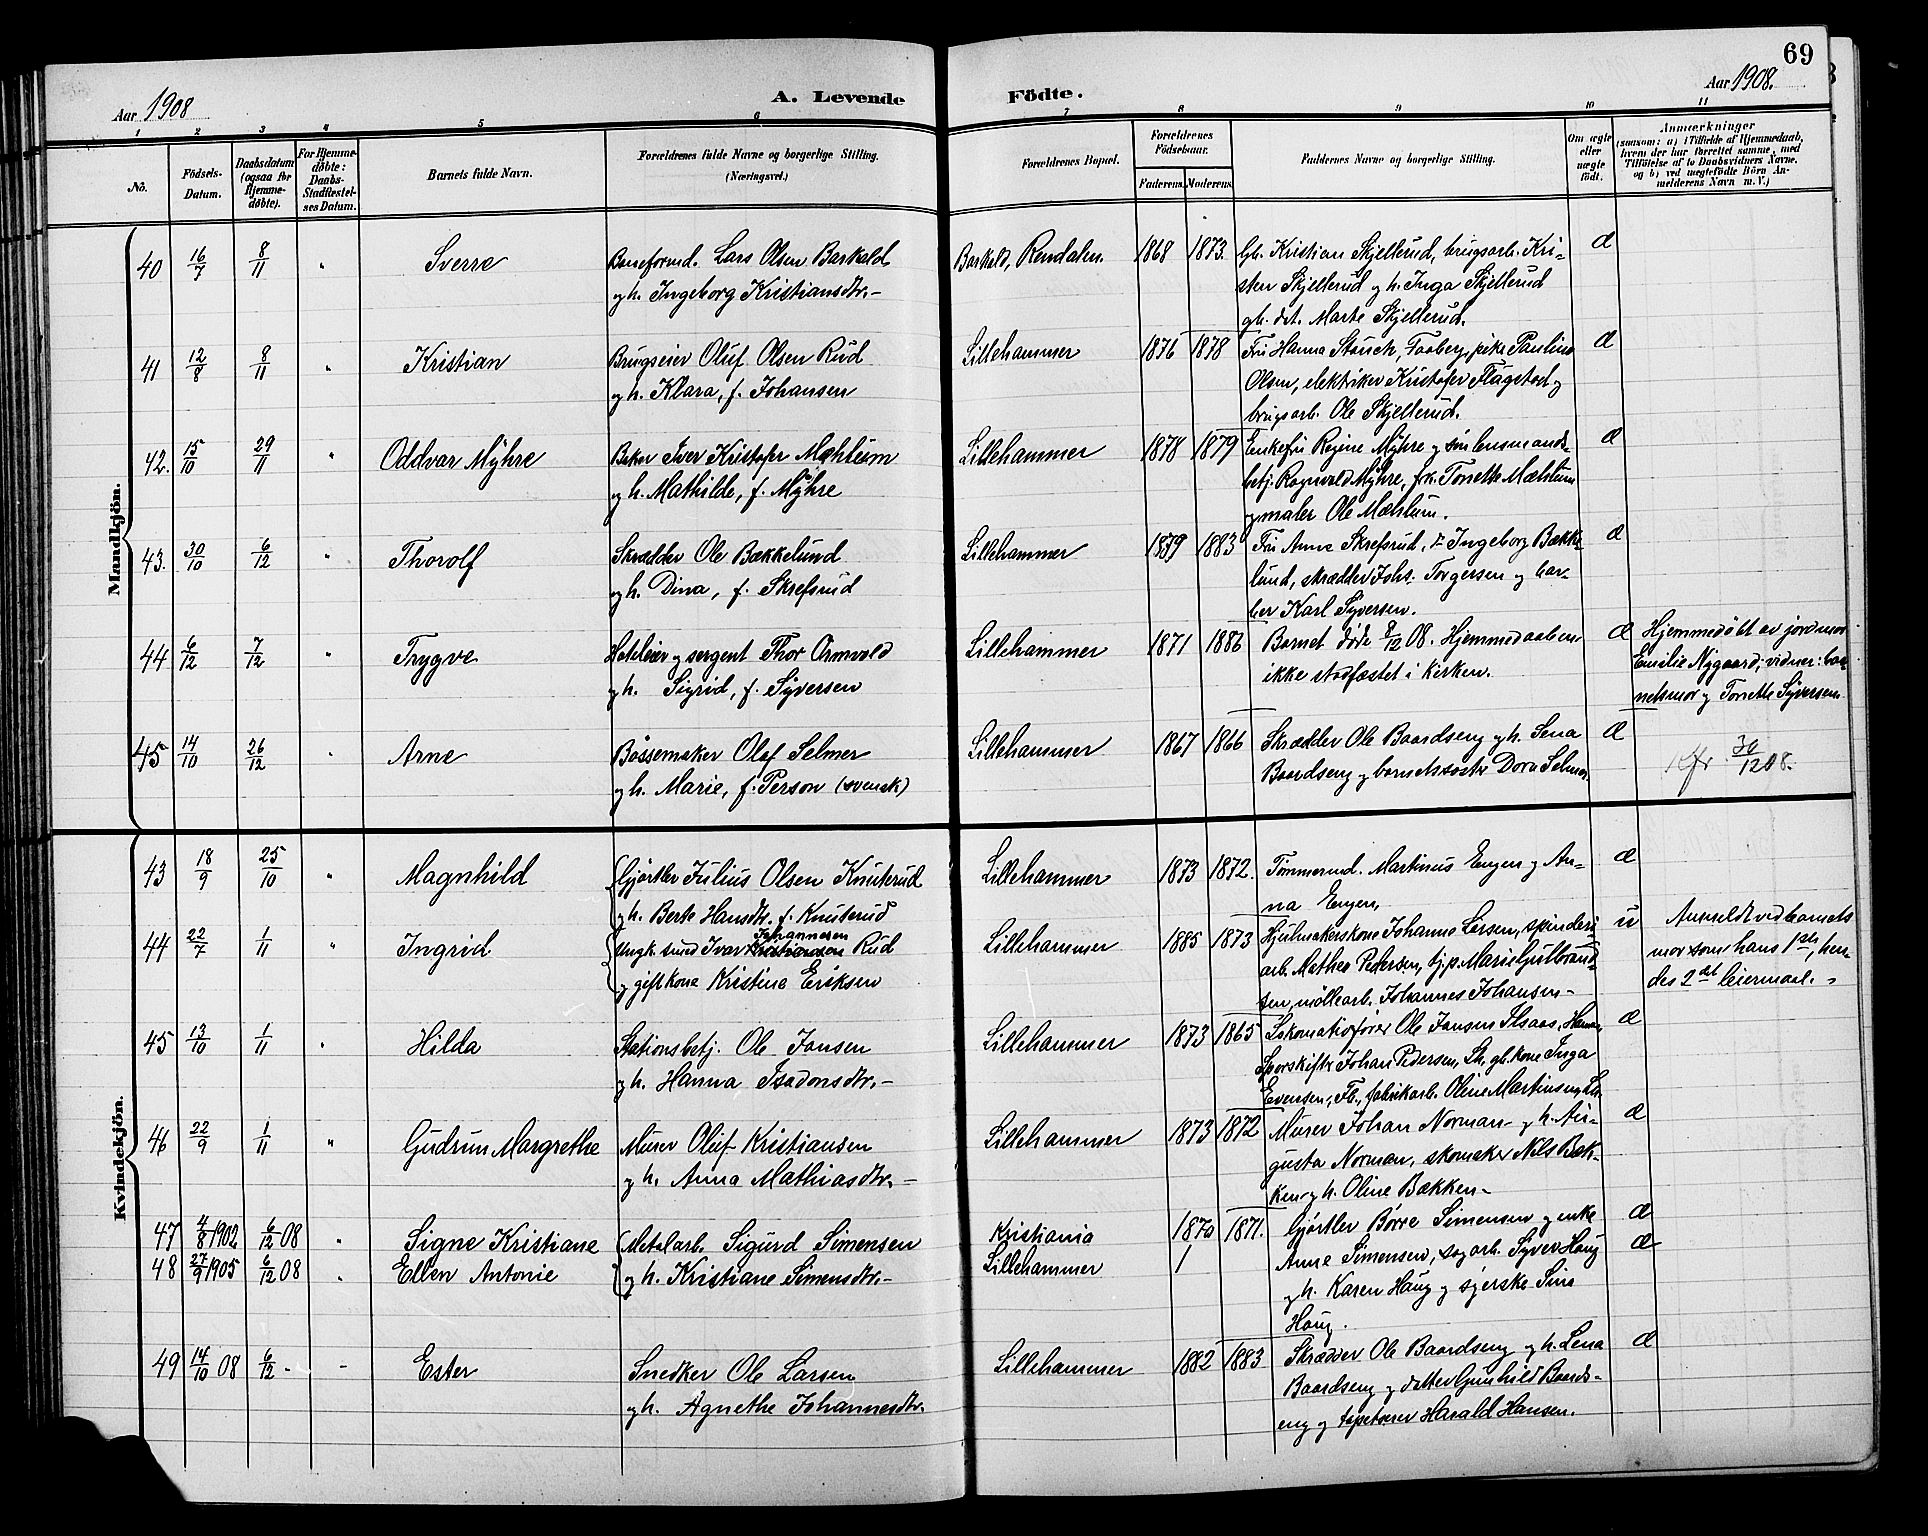 69
Aar 1908
A. Levende Födte.
Aar 1908.
1 2 3 4 5 6 7 8 9 10 11
No.
Födsels-Datum.
Daabsdatum (ogsaa for Hjemme-döbte).
For Hjemme-döbte: Daabs-Stadfæstel-ses Datum.
Barnets fulde Navn.
Forældrenes fulde Navne og borgerlige Stilling.
(Næringsvei.)
Forældrenes Bopæl.
Forældrenes Födselsaar.
Faderens. Moderens.
Faddernes Navne og borgerlige Stilling.
Om ægte eller uægte födt.
Anmærkninger
(saasom: a) i Tilfælde af Hjemmedaab, hvem der har forrettet samme, med Tilföielse af to Daabsvidners Navne, og b) ved uægtefödte Börn An-melderens Navn m. V.)
Mandkjön.
40 16/7 8/11 " Sverre
Baneformd. Lars Olsen Barkald
og h. Ingeborg Kristiansdtr.-
Barkald, Rendalen. 1868 1873.
Gb. Kristian Skjellerud, brugsarb. Kri-
sten Skjellerud og h. Inga Skjellerud
gb. dat. Marte Skjellerud.
æ
41 12/8 8/11 " Kristian
Brugseier Oluf Olsen Rud
og h. Klara, f. Johansen
Lillehammer 1876 1878
Fru Hanna Stauch, Faaberg, pike Pauline
Olsen, elektriker Kristofer Flagstad og
brugsarb. Ole Skjellerud.
æ
42. 15/10 29/11 " Oddvar Myhre
Baker Iver Kristofer Mæhlum
og h. Mathilde, f. Myhre
Lillehammer 1878 1879
Enkefru Regine Myhre og søn lensmands-
betj. Ragnvald Myhre, frk. Tonette Mæhlum
og maler Ole Mæhlum.
æ
43. 30/10 6/12 " Thorolf
Skrædder Ole Bækkelund
og h. Dina, f. Skrefsrud
Lillehammer 1879 1883
Fru Anne Skrefsrud, Ingeborg Bække-
lund, skrædder Johs. Torgersen og bar-
ber Karl Syversen.
æ
44 6/12 7/12 " Trygve
Hoteleier og sergent Thor Ormvold
og h. Sigrid, f. Syversen
Lillehammer 1871 1886
Barnet døde 8/12 08. Hjemmedaaben
ikke stadfæstet i kirken.
æ
Hjemmedøbt av jordmor
Emilie Nygaard; vidner: bar-
netsmor og Tonette Syversen.
45 14/10 26/12 " Arne
Bøssemaker Olaf Selmer
og h. Marie, f. Person (svensk)
Lillehammer 1867 1866
Skrædder Ole Baardseng og h. Lena
Baardseng og barnets søster Dora Selmer.
æ
Kfr 30/12 08.
Kvindekjön.
43 18/9 25/10 " Magnhild
Gjørtler Julius Olsen Knuterud
og h. Berte Hansdtr. f. Knuterud
Lillehammer 1873 1872.
Tømmermd. Martinus Engen og An-
na Engen.
æ
44 22/7 1/11 " Ingrid
Ungk. smed Ivar Kristiansen Johannesen Rud
og gift kone Kristine Eriksen
Lillehammer 1885 1873
Hjulmakerskone Johanne Larsen, spinderi
arb. Mathea Pedersen, tj.p. Marie Gulbrand-
sen, møllearb. Johannes Johansen-
u
Anmeldt ved barnets
mor som hans 1ste, hen-
des 2det leiermaal.-
45 13/10 1/11 " Hilda
Stationsbetj. Ole Jansen
og h. Hanna Isadonsdtr.-
Lillehammer 1873 1865
Lokomotivfører Ole Jansen Ilsaas, Hamar,
Sporskifter Johan Pedersen, Lh, gb.kone Inga
Evensen, Fb., fabrikarb. Oline Martinsen, Lh.
æ
46 22/9 1/11 " Gudrun Margrethe
Murer Oluf Kristiansen
og h. Anna Mathiasdtr.-
Lillehammer 1873 1872
Murer Johan Norman- og h. Au-
gusta Norman, skomaker Nils Bæk-
ken og h. Oline Bækken-
æ
47 4/8 1902 6/12 08 " Signe Kristiane
48 27/9 1905 6/12 08 " Ellen Antonie
Metalarb. Sigurd Simensen
og h. Kristiane Simensdtr.-
Kristiania
Lillehammer
1870 1871.
Gjørtler Børre Simensen og enke
Anne Simensen, sagarb. Syver Haug
og h. Karen Haug og syerske Sina
Haug.
æ
æ
49 14/10 08 6/12 - - Ester
Snedker Ole Larsen
og h. Agnethe Johannesdtr.
Lillehammer 1882 1883
Skrædder Ole Baardseng og h. Lena
Baardseng og datter Gunhild Baards-
eng og tapetserer Harald Hansen.
æ